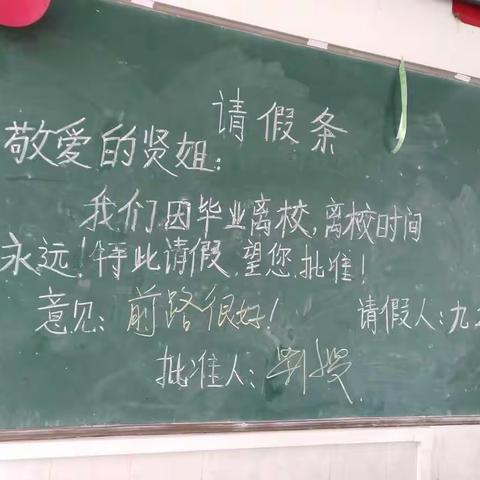 请假条
敬爱的贤姐:
我们因毕业离校,离校时间
永远!特此请假,望您批准!
意见:前路很好! 请假人:九
批准人: